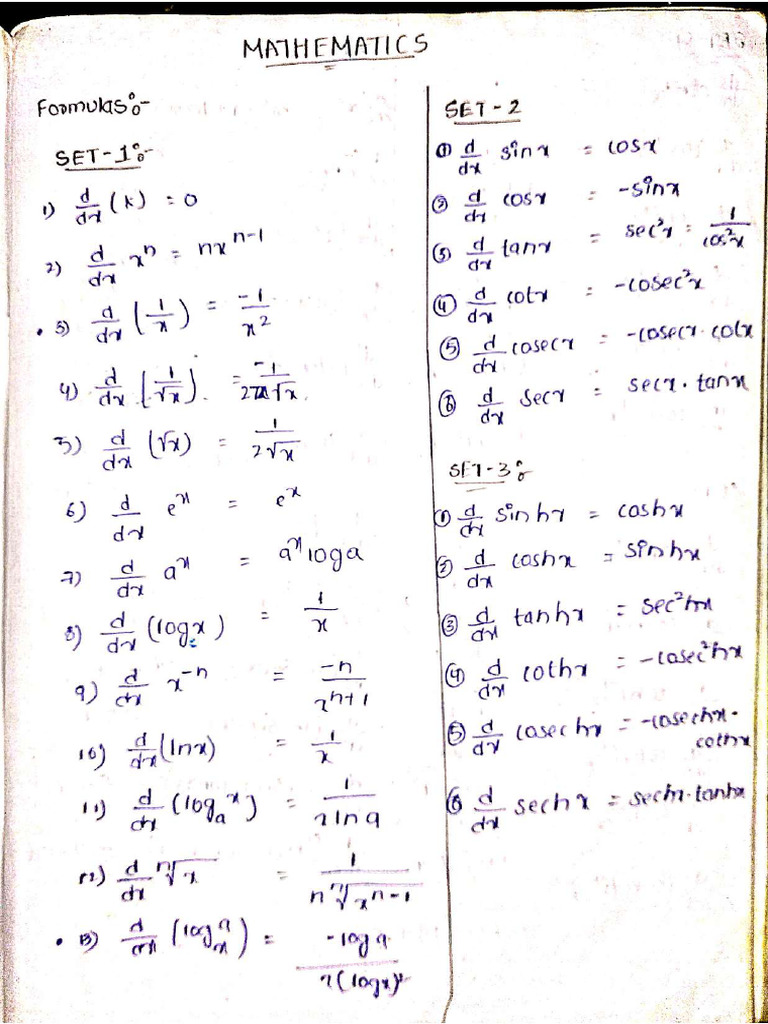 MATHEMATICS
Formulas:-
SET-1:-
1) d/dx (k) = 0
2) d/dx x^n = nx^(n-1)
3) d/dx (1/x) = -1/x^2
4) d/dx (1/√x) = -1/2x√x
5) d/dx (√x) = 1/2√x
6) d/dx e^x = e^x
7) d/dx a^x = a^x loga
8) d/dx (logx) = 1/x
9) d/dx x^-n = -n/x^(n+1)
10) d/dx (lnx) = 1/x
11) d/dx (log_a x) = 1/x ln a
12) d/dx ⁿ√x = 1/n ⁿ√x^(n-1)
13) d/dx (log_x a) = -log a/x(logx)^2
SET-2
① d/dx sinx = cosx
② d/dx cosx = -sinx
③ d/dx tanx = sec²x = 1/cos²x
④ d/dx cotx = -cosec²x
⑤ d/dx cosecx = -cosecx·cotx
⑥ d/dx secx = secx·tanx
SET-3:
① d/dx sinhx = coshx
② d/dx coshx = sinhx
③ d/dx tanhx = sec²hx
④ d/dx cothx = -cosec²hx
⑤ d/dx cosechx = -cosechx·
cothx
⑥ d/dx sechx = sechx·tanhx